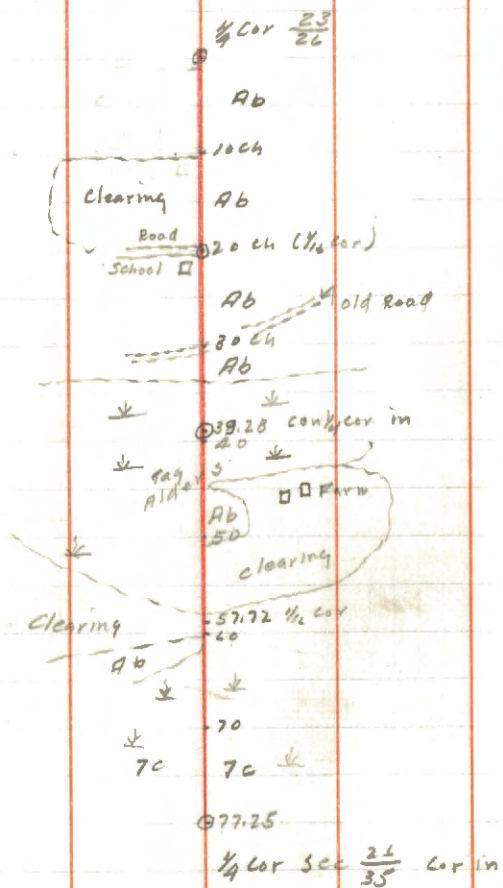 1/4 Cor 23/26
Ab
10 ch
Clearing
Ab
Road
20 ch (1/16 cor)
School
Ab
old Road
30 ch
Ab
39.28 con 1/4 cor in
40
Tag
Alders
Farm
Ab
50
clearing
57.72 1/16 cor
Clearing
60
Ab
70
7c
7c
77.25
1/4 cor Sec 26/35 Cor in